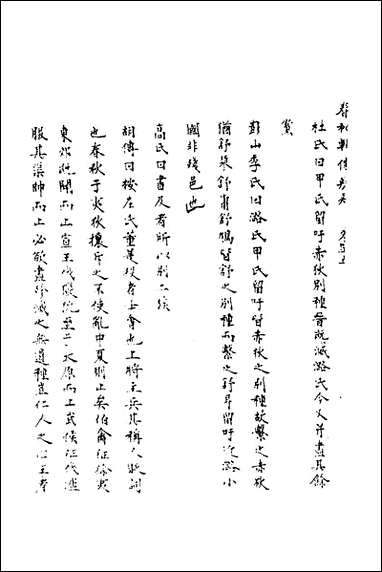 春秋輯傳卷 
杜氏曰甲氏留吁赤狄别種晉既滅潞氏今又并盡其餘
黨
彭山季氏曰潞氏甲氏留吁皆赤狄之别種故繫之赤狄
猶舒蓼舒庸舒鳩皆舒之别種而繫之舒耳留吁近潞小
國非殘邑也
高氏曰書及者所以别二族
胡傳曰按左氏董是役者士會也上將主兵其稱人貶詞
也春秋于夷狄攘斥之不使亂中夏則止矣伯禽征徐夷
東郊既開而止宣王伐玁狁至于太原而止武侯征戎瀘
服其渠帥而止必欲盡殄滅之無遺種豈仁人之心王者